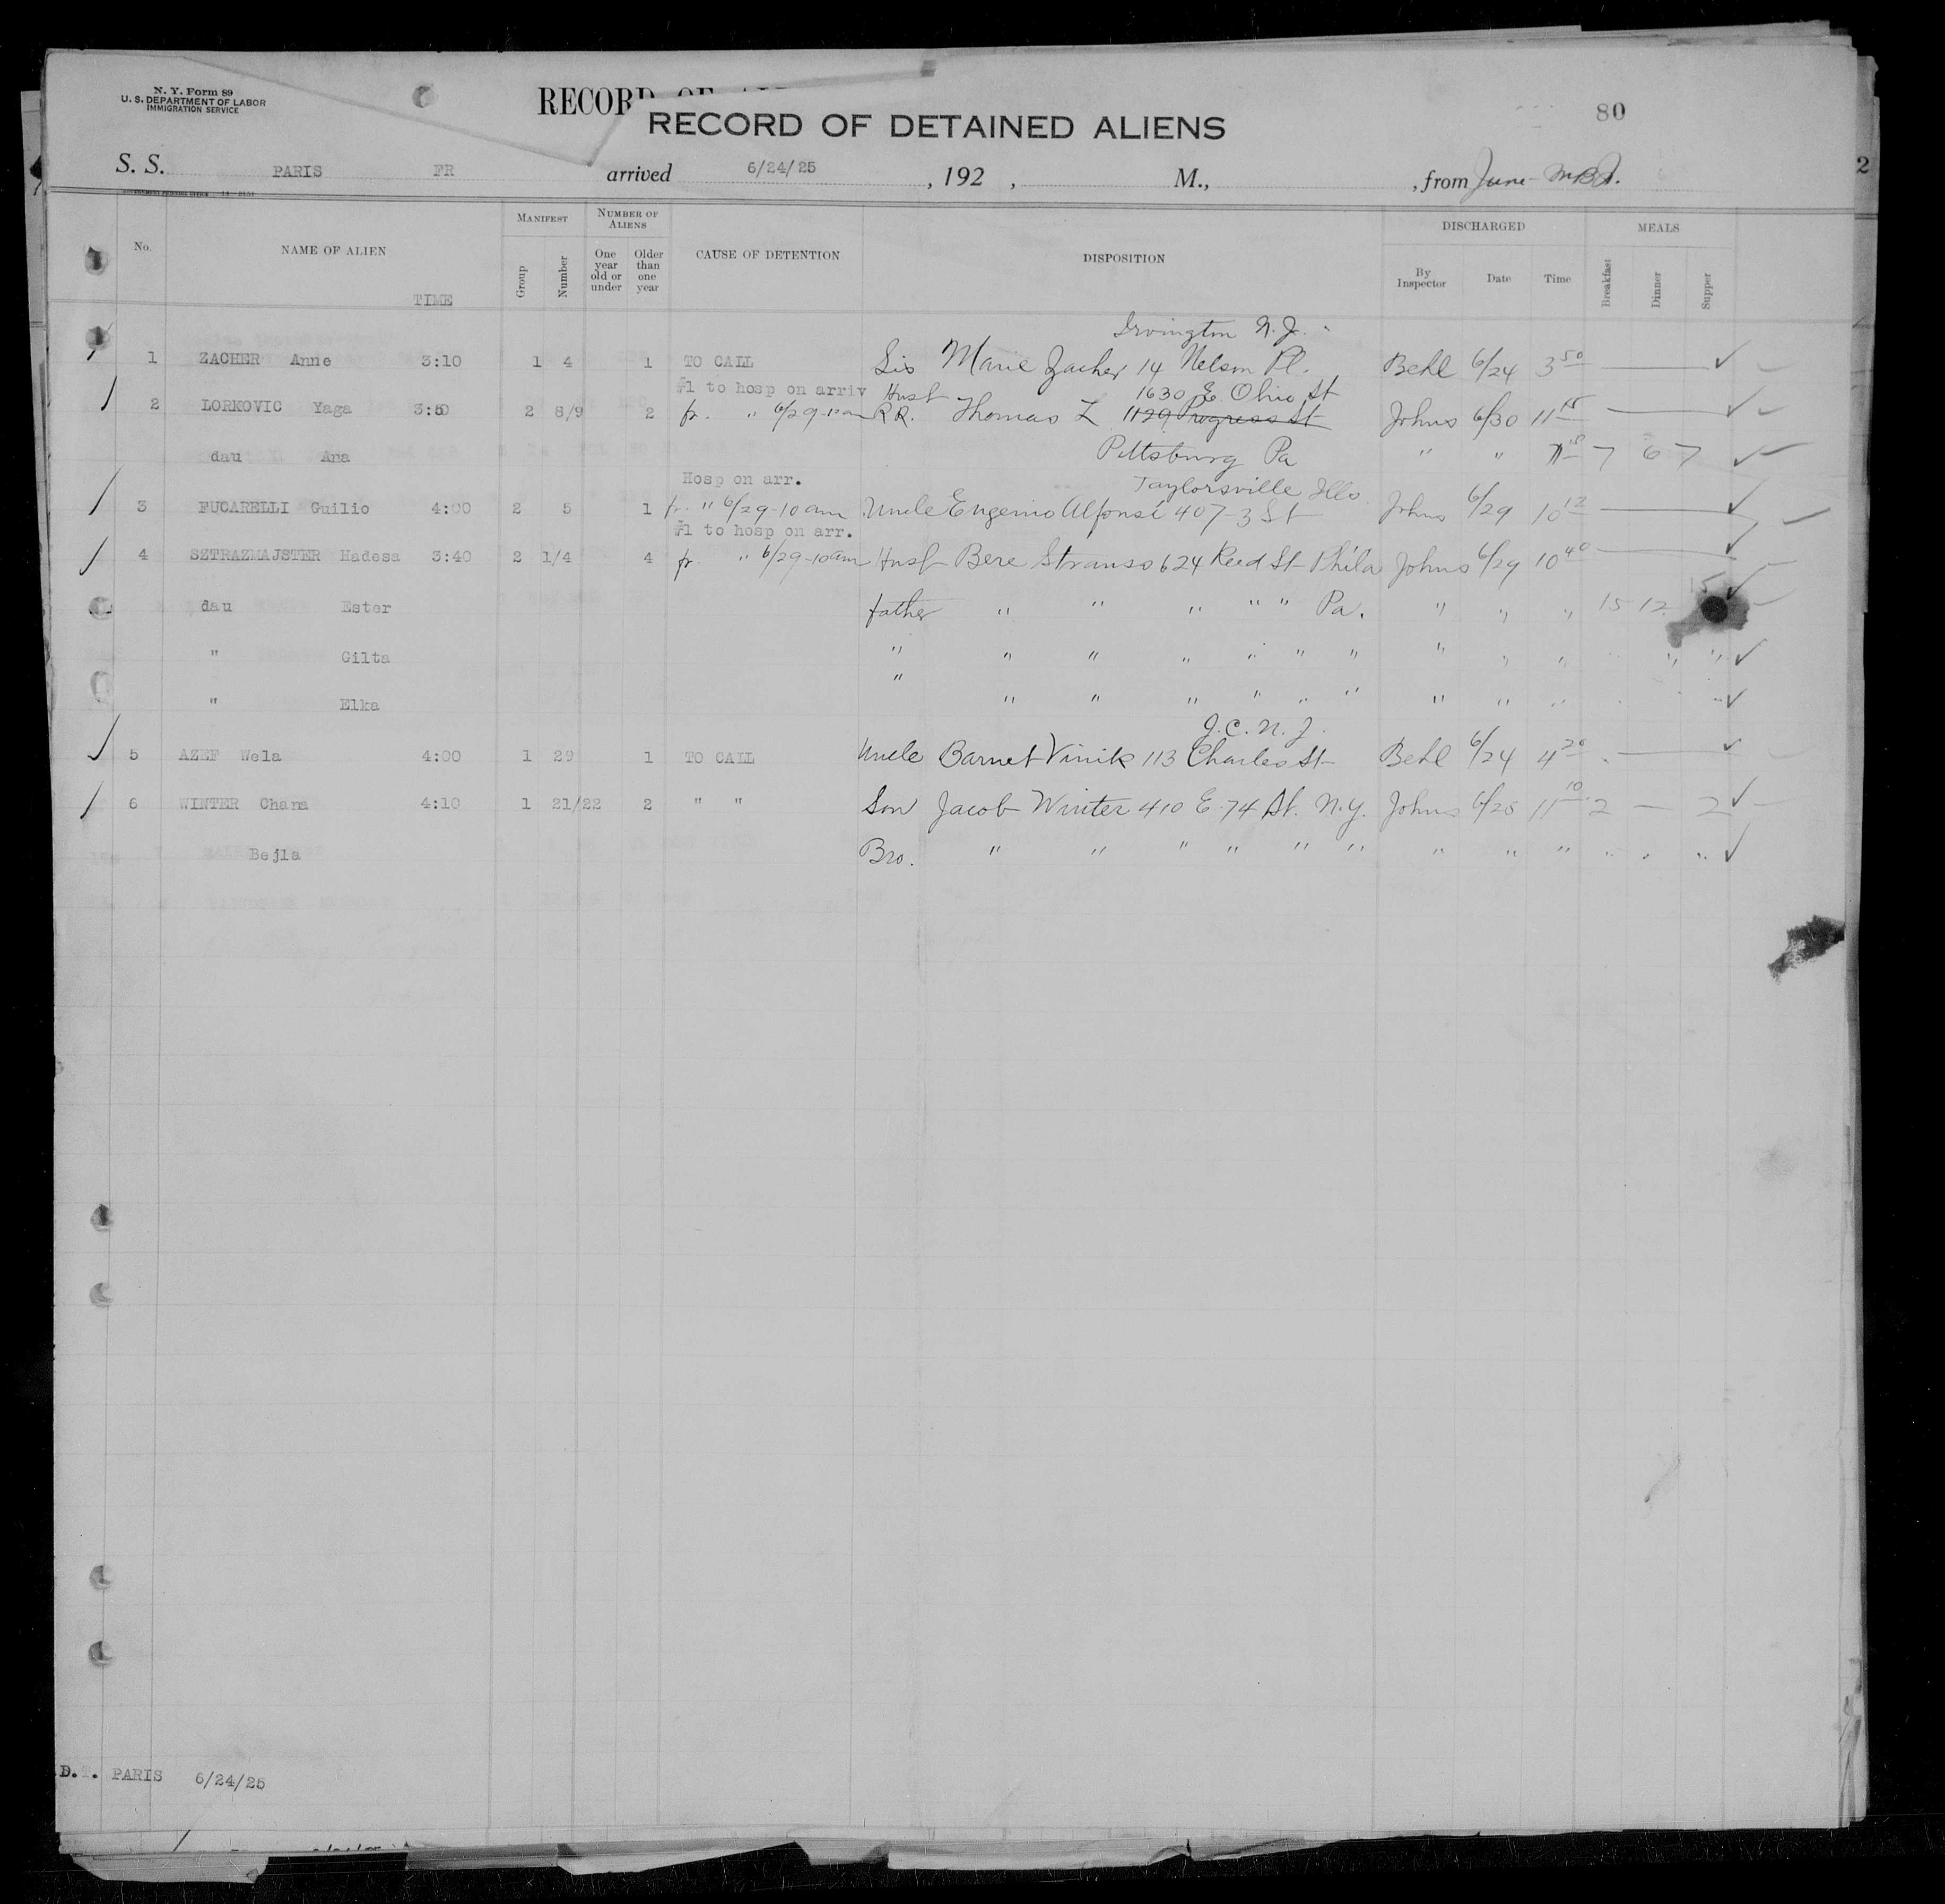 N. Y. Form 89
U. S. DEPARTMENT OF LABOR
IMMIGRATION SERVICE
RECORD OF
RECORD OF DETAINED ALIENS
80
S. S. PARIS FR arrived 6/24/25, 192 , M., , from June
2
No. NAME OF ALIEN TIME MANIFEST Group Number NUMBER OF ALIENS One year old or under Older than one year CAUSE OF DETENTION DISPOSITION DISCHARGED By Inspector Date Time MEALS Breakfast Dinner Supper
Irvington N.J.
1 ZACHER Anne 3:10 1 4 1 TO CALL Sis Marie Zacher 14 Nelson Pl. Behl 6/24 3 50
#1 to hosp on arriv Husb 1630 E. Ohio St
2 LORKOVIC Yaga 3:50 2 8/9 2 fr. " 6/29-10am RR. Thomas L 1129 Progress St Johns 6/30 11 15
dau Ana Pittsburg Pa " " 7 6 7
Hosp on arr. Taylorsville Ills
3 FUCARELLI Guilio 4:00 2 5 1 fr. " 6/29-10am Uncle Eugenio Alfonsi 407-3 St Johns 6/29 10 12
#1 to hosp on arr.
4 SZTRAZMAJSTER Hadesa 3:40 2 1/4 4 fr. " 6/29-10am Husb Bere Strauso 624 Reed St Phila Johns 6/29 10 40
dau Ester father " " " " " Pa. " " " 15 12 15
" Gilta " " " " " " " " " " " "
" Elka " " " " " " " " " "
J.C. N.J.
5 AZEF Wela 4:00 1 29 1 TO CALL Uncle Barnet Vinik 113 Charles St Behl 6/24 4 20
6 WINTER Chana 4:10 1 21/22 2 " " Son Jacob Winter 410 E. 74 St. N.Y. Johns 6/25 11 10 2 — 2
Bejla Bro. " " " " " " " " " " " "
D.T. PARIS 6/24/25